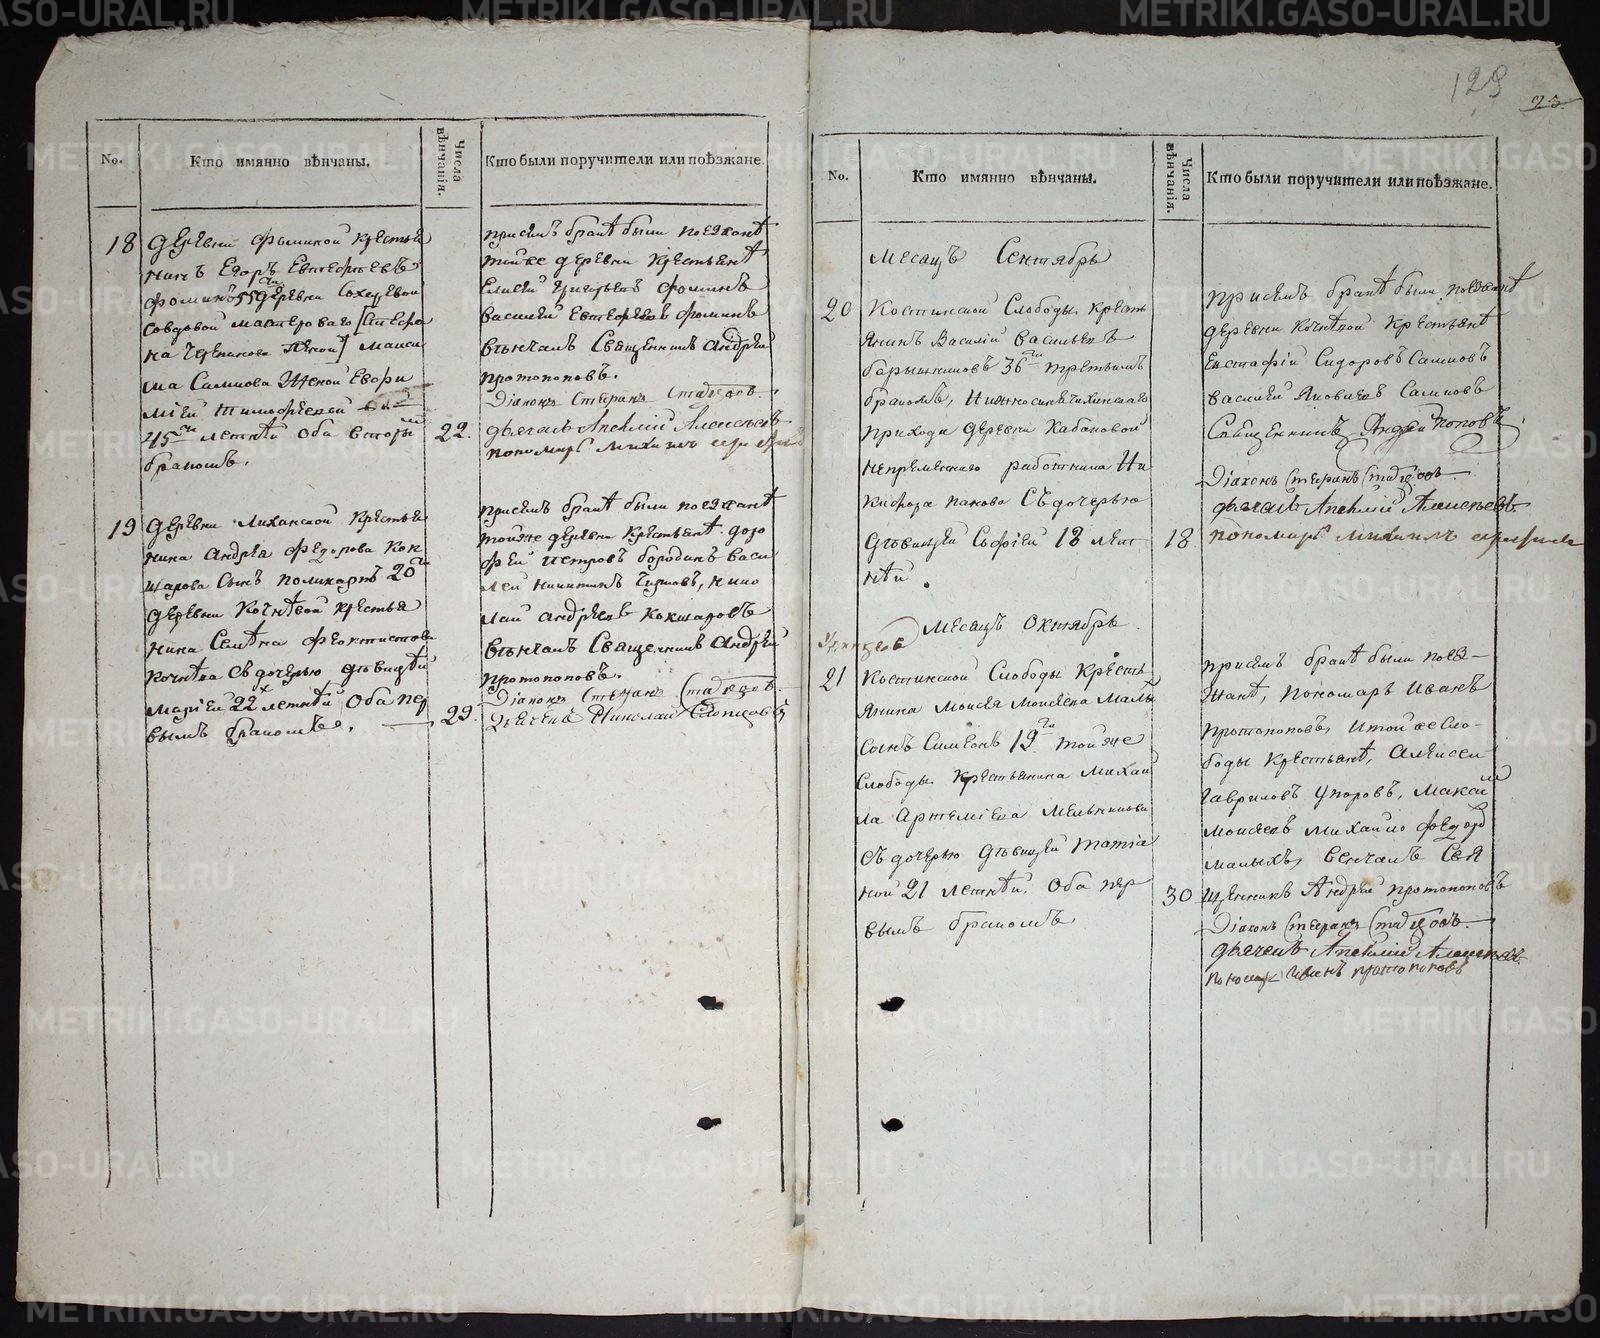 129
25
No.
Кто имянно вѣнчаны.
Числа вѣнчанія.
Кто были поручители или поѣзжане.
18
деревни Фоминой крестья
нинъ Егоръ Евтефѣевъ
Фоминъ 55 ти деревни
мастероваго
женой] Макси
ма Салинова женой Евфи
міей Тимофѣевой
45 ти летнѣй оба вторы
бракомъ.
22.
присемъ бракѣ были поезжанѣ
тойже деревни крестьянѣ
Елисей Григорьевъ Фоминъ
Василей Евтефѣевъ Фоминъ
вѣнчалъ Священникъ Андрей
протопоповъ.
Діаконъ Стефанъ
дьячекъ Алексѣевъ
пономарь
19
деревни Лиханской крестья
нина Андрея Федорова Кок
шарова сынъ Поликарпъ 20 ти
деревни Кочнѣвой крестья
нина Семѣна Феоктистова
Кочнѣва съ дочерью дѣвицѣй
Маріей 22 х летнѣй оба пер
вымъ бракомъ.
29.
присемъ бракѣ были поезжанѣ
тойже деревни крестьянѣ доро
фей Петровъ Бородинъ Васи
лей Никитинъ нико
лай Андреевъ Кокшаровъ
вѣнчалъ Священникъ Андрей
протопоповъ.
Діаконъ Стефанъ
дьячекъ Николай
No.
Кто имянно вѣнчаны.
Числа вѣнчанія.
Кто были поручители или поѣзжане.
Месяцъ Сентябрь
20
Костинской Слободы кресть
янинъ Василій Васильевъ
Барышниковъ 36 ти третьимъ
бракомъ,
прихода деревни Кабаковой
непременнаго работника Ни
кифора панова съ дочерью
дѣвицей Софіей 18 лет
нѣй
18
присемъ бракѣ были поезжанѣ
деревни Кочнѣвой крестьянѣ
Евстафій Сидоровъ Салновъ
Василей Яковлевъ Салновъ
Священникъ Андрей Поповъ
Діаконъ Стефанъ
дьячекъ Алексѣевъ
пономарь
Месяцъ Октябрь.
21
Костинской Слободы кресть
янина Моисея Моисеева Малы
сынъ Симеонъ 19 ти тойже
Слободы крестьянина Михаи
ла Артеміева Мельникова
съ дочерью дѣвицей Татія
ной 21 летнѣй. оба пер
вымъ бракомъ
30
присемъ бракѣ были поез-
жанѣ, пономарь Иванъ
протопоповъ, и тойже Сло-
боды крестьянѣ, Алексей
Гавриловъ Упоровъ, Макси
Моисеевъ Михайло Федор
малыхъ, венчалъ Свя
щенникъ Андрей протопоповъ
Діаконъ Стефанъ
дьячекъ Алексѣевъ
пономарь Иванъ протопоповъ